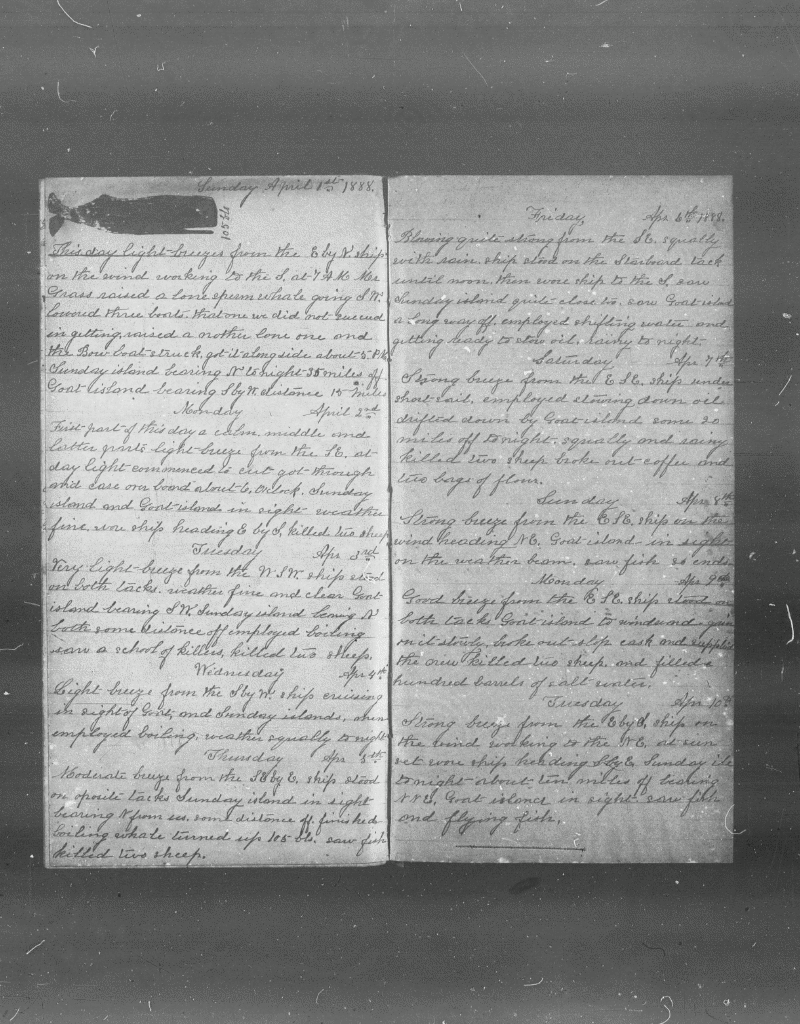 Sunday April 1st 1888.
105 bls
This day light breezes from the E by N ship
on the wind working to the S, at 7 A M Mr
Grass raised a lone sperm whale going S.W.
lowered three boats that one we did not succeed
in getting, raised a nother lone one and
the Bow boat struck, got it along side about 5 P.M.
Sunday island bearing N to night 35 miles off
Goat island bearing S by W. distance 15 miles
Monday April 2nd
First part of this day a calm, middle and
latter parts light breeze from the SE. at
day light commenced to cut got through
and case on board about 6, Oclock. Sunday
island and Goat island in sight weather
fine, wore ship heading E by S, killed two sheep
Tuesday Apr 3rd
Very light breeze from the W.S.W. ship stood
on both tacks. weather fine and clear Goat
island bearing S.W. Sunday island N
both some distance off employed boiling
saw a school of killers, killed two sheep,
Wednesday Apr 4th
Light breeze from the S by W. ship cruising
in sight of Goat, and Sunday islands, men
employed boiling, weather squally to night
Thursday Apr 5th
Moderate breeze from the SE by E. ship stood
on oposite tacks Sunday island in sight
bearing N from us. some distance off. finished
boiling whale turned up 105 bls. saw fish
killed two sheep.
Friday Apr 6th 1888.
Blowing quite strong from the SE, squally
with rain. ship stood on the Starboard tack
until noon, then wore ship to the S, saw
Sunday island quite close to. saw Goat island
a long way off. employed shifting water and
getting ready to stow oil, rainy to night
Saturday Apr 7th
Strong breeze from the E S E, ship under
short sail, employed stowing down oil
drifted down by Goat island some 20
miles off to night, squally and rainy
killed two sheep broke out coffee and
two bags of flour.
Sunday Apr 8th
Strong breeze from the E S E, ship on the
wind heading N E. Goat island in sight
on the weather beam. saw fish so ends
Monday Apr 9th
Good breeze from the E S E ship stood on
both tacks Goat island to windward gain
on it slowly, broke out slop cask and supplied
the crew killed two sheep, and filled a
hundred barrels of salt water.
Tuesday Apr 10th
Strong breeze from the E by S, ship on
the wind working to the N E, at sun
set wore ship heading S by E. Sunday isle
to night about ten miles off bearing
N N E, Goat island in sight saw fish
and flying fish.